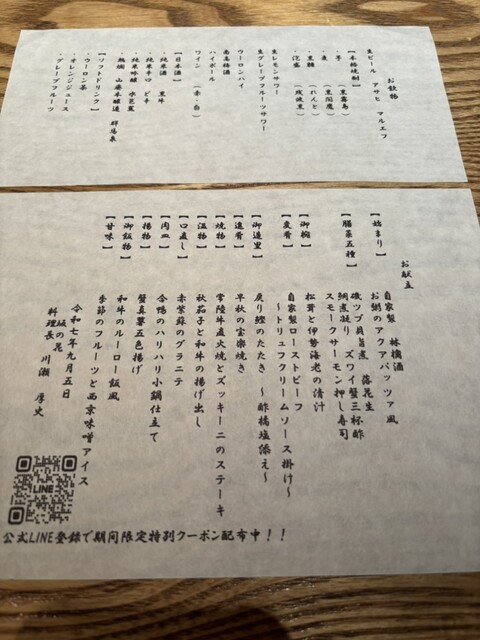 お飲物
生ビール アサヒ マルエフ
【本格焼酎】
・芋 (黒霧島)
・麦 (里閻魔)
・黒糖 (れんと)
・泡盛 (残波黒)
生レモンサワー
生グレープフルーツサワー
ウーロンハイ
南高梅酒
ハイボール
ワイン (赤・白)
【日本酒】
・純米酒
・純米辛口 ど辛
・純米吟醸 水芭蕉
・熱燗 山廃本醸造 群馬泉
【ソフトドリンク】
・ウーロン茶
・オレンジジュース
・グレープフルーツ
お献立
【始まり】 自家製 林檎酒
お粥のアクアパッツァ風
【膳菜五種】 磯ツブ貝旨煮 落花生
鯛煮凝り ズワイ蟹三杯酢
スモークサーモン押し寿司
【御椀】 松茸と伊勢海老の清汁
【変肴】 自家製ローストビーフ
~トリュフクリームソース掛け~
【御造里】 炙り鰹のたたき ~酢橘塩添え~
【進肴】 早秋の宝楽焼き
【焼物】 常陸牛直火焼とズッキーニのステーキ
【温物】 秋茄子と和牛の揚げ出し
【口直し】 赤紫蘇のグラニテ
【肉皿】 合鴨のハリハリ小鍋仕立て
【揚物】 蟹真薯五色揚げ
【御飯物】 和牛のルーロー飯風
【甘味】 季節のフルーツと西京味噌アイス
令和七年九月五日
坂の花
料理長 川瀬 厚史
LINE
公式LINE登録で期間限定特別クーポン配布中!!